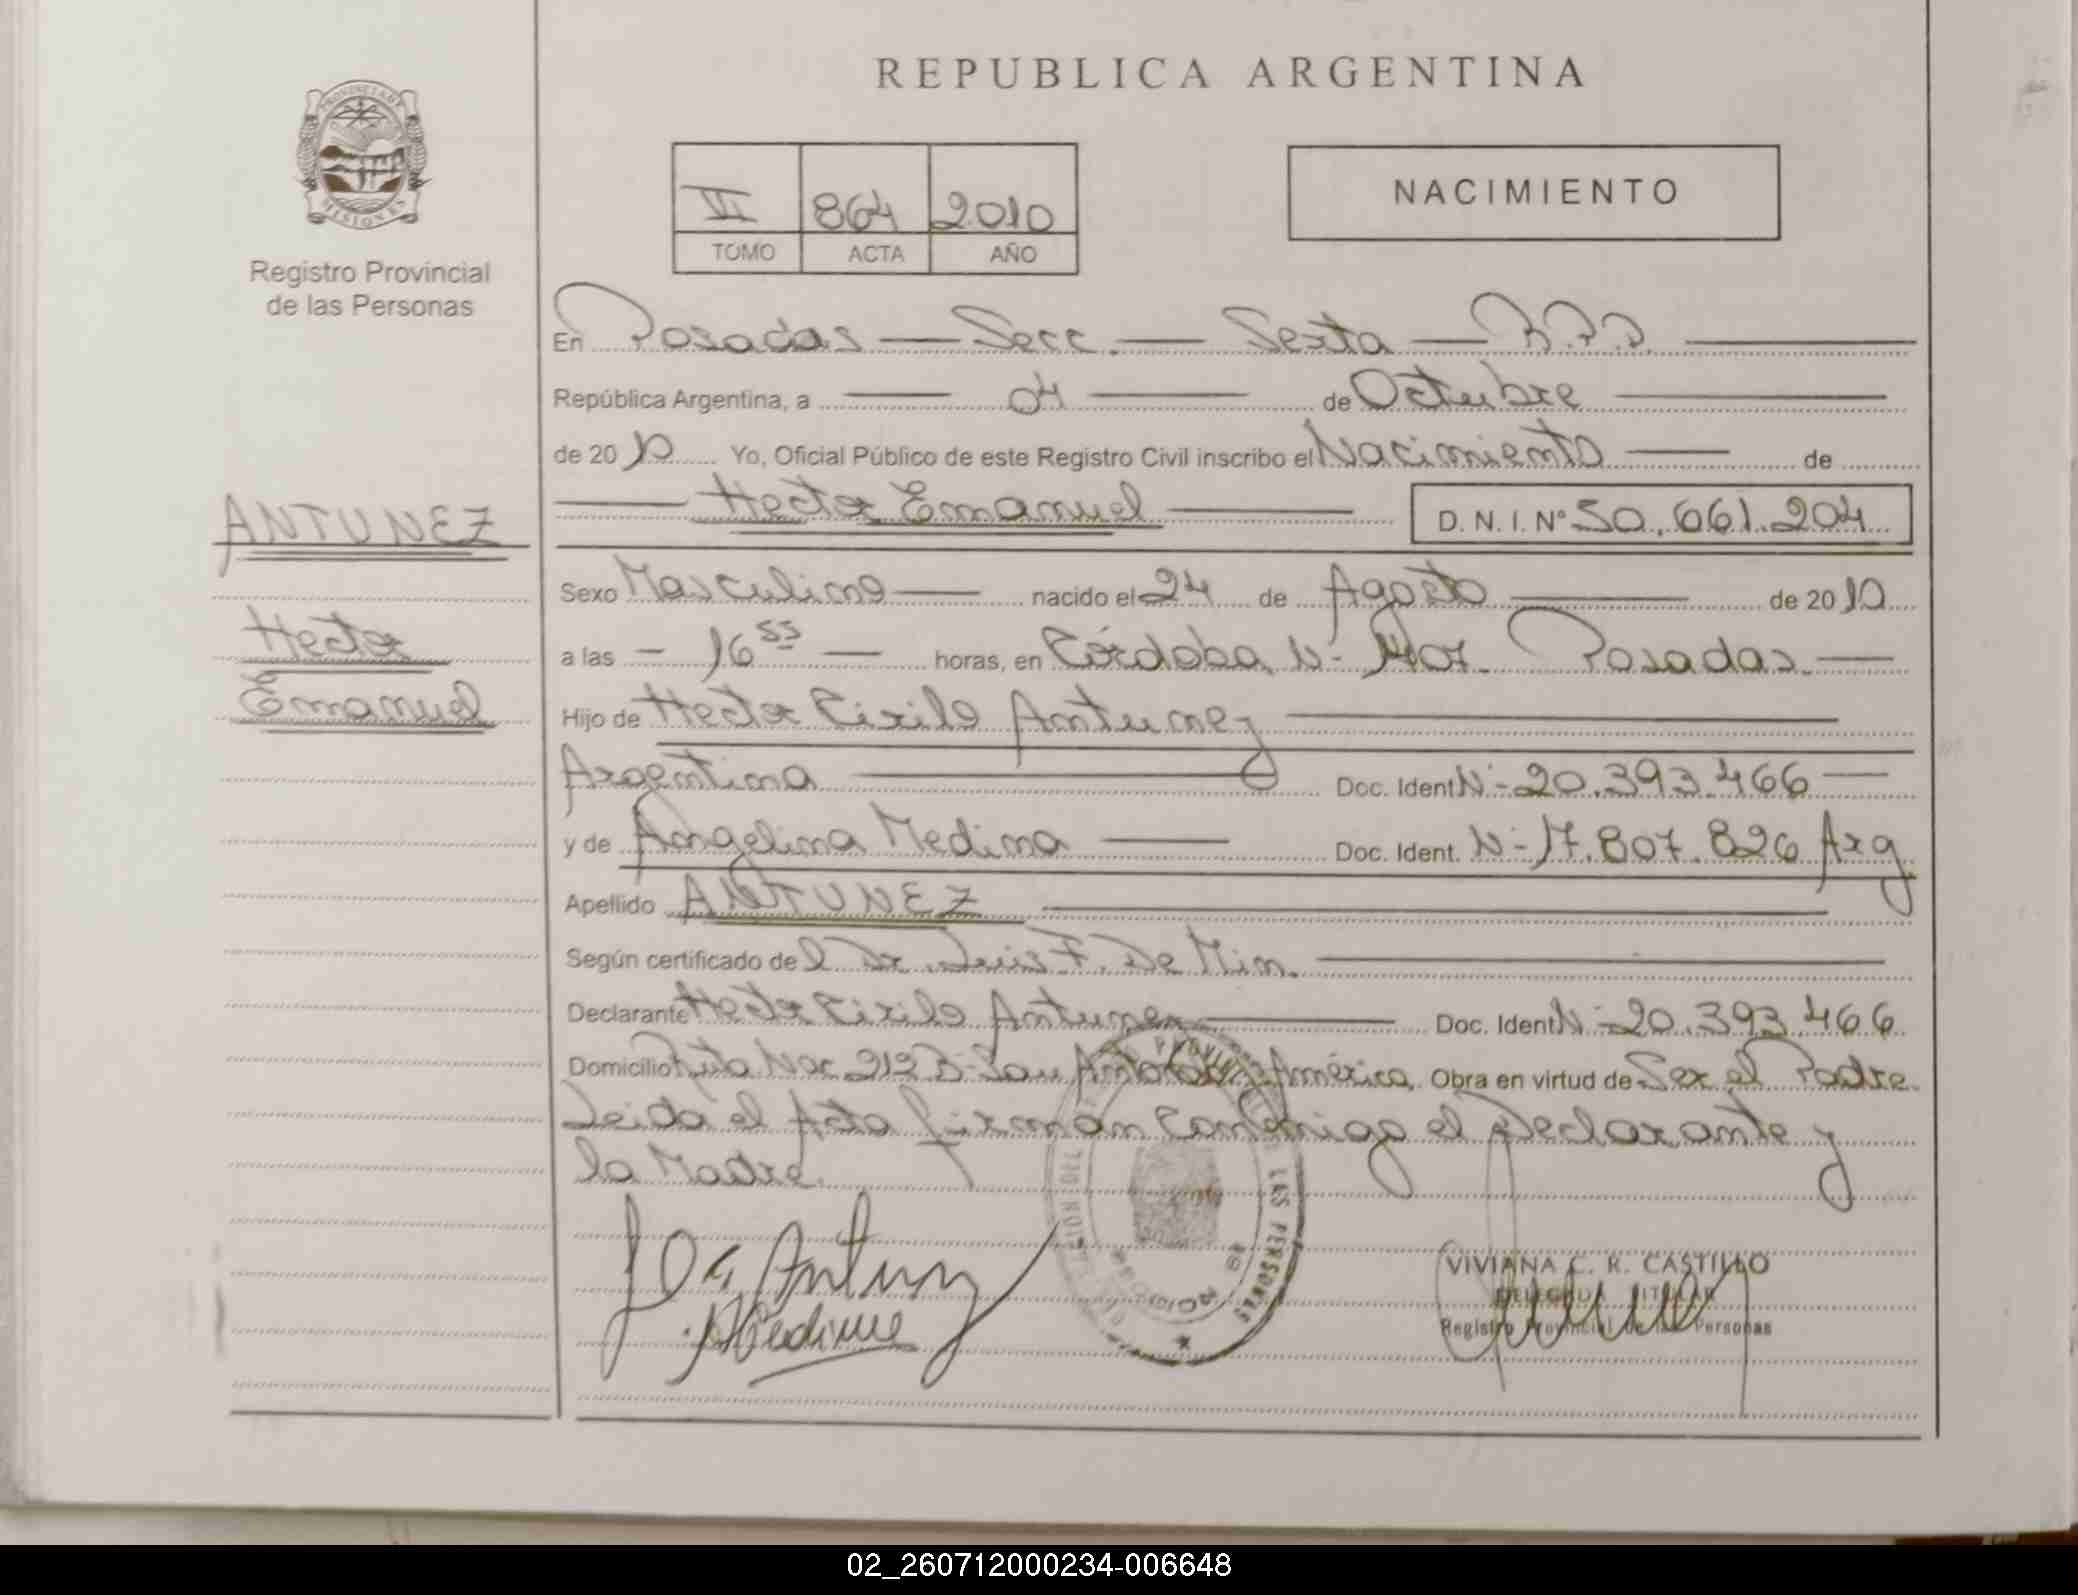 REPUBLICA ARGENTINA
PROVINCIA DE MISIONES
Registro Provincial
de las Personas
VI 864 2010
TOMO ACTA AÑO
NACIMIENTO
En Posadas — Secc. — Sexta — R.P.P.
República Argentina, a — 04 — de Octubre
de 2010 Yo, Oficial Público de este Registro Civil inscribo el Nacimiento — de
— Hector Emanuel — D. N. I. Nº 50.661.204
ANTUNEZ
Hector
Emanuel
Sexo Masculino — nacido el 24 de Agosto — de 2010
a las - 16 55 — horas, en Córdoba Nº 1407. Posadas. —
Hijo de Hector Cirilo Antunez
Argentina — Doc. Ident Nº 20.393.466 —
y de Angelina Medina — Doc. Ident. Nº 17.807.826 Arg
Apellido ANTUNEZ
Según certificado del Dr. Luis F. De Min.
Declarante Hector Cirilo Antunez — Doc. Ident Nº 20.393.466
Domicilio Ruta Nac 212 San América, Obra en virtud de Ser el Padre.
Leida el Acta firman conmigo el Declarante y
la Madre.
Antunez
AMedina
LAS PERSONAS
VIVIANA C. R. CASTILLO
DELEGADA TITULAR
Registro Provincial de las Personas
02_260712000234-006648